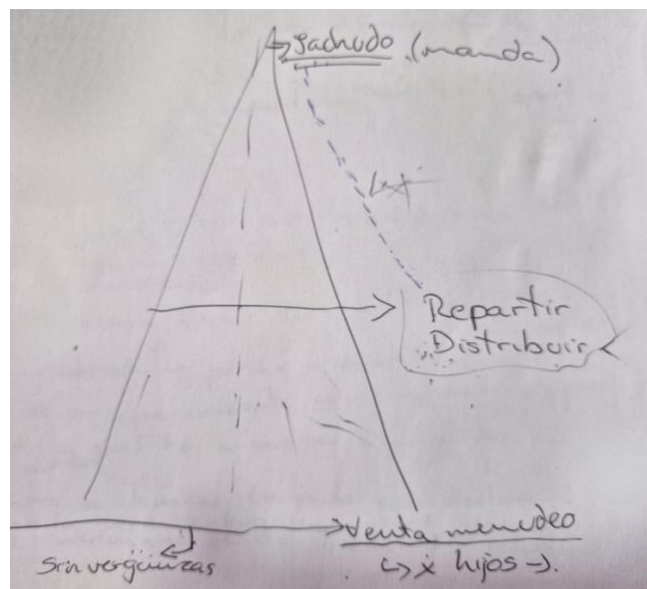 (manda)
Repartir
Distribuir
Venta menudeo
sinvergüuzas
hijos